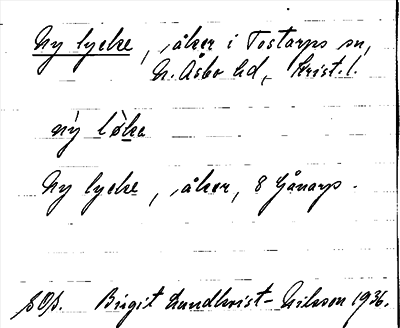 Ny lycke, åker i Tostarps sn,
N. Åsbo hd, Krist. l.
nỳ løkə
Ny lycke, åker, 8 Gånarp.
SOB. Birgit Lundkvist-Nilsson 1936.